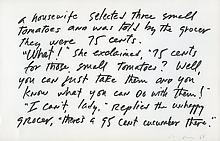 a housewife selected three small
tomatoes and was told by the grocer
they were 75 cents.
"What!" she exclaimed. "75 cents
for those small tomatoes? Well,
you can just take them and you
know what you can do with them!"
"I can't, lady," replied the unhappy
grocer, "there's a 95 cent cucumber there."